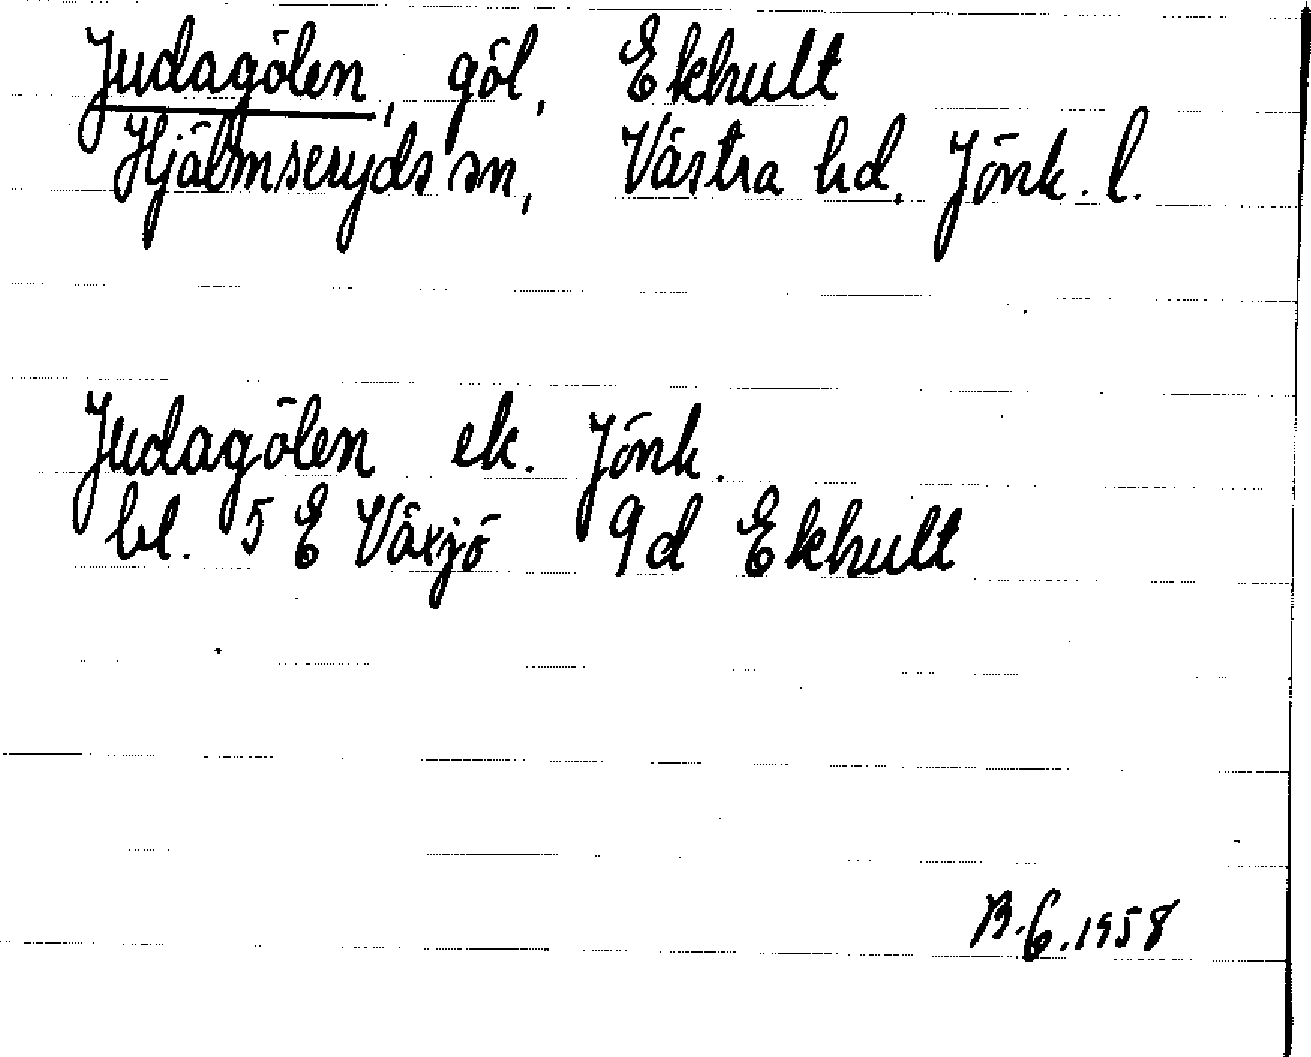 Judagölen, göl, Ekhult
Hjälmseryds sn, Västra hd. Jönk. l.
Judagölen ek. Jönk.
bl. 5 E Växjö 9d Ekhult
B.G. 1958